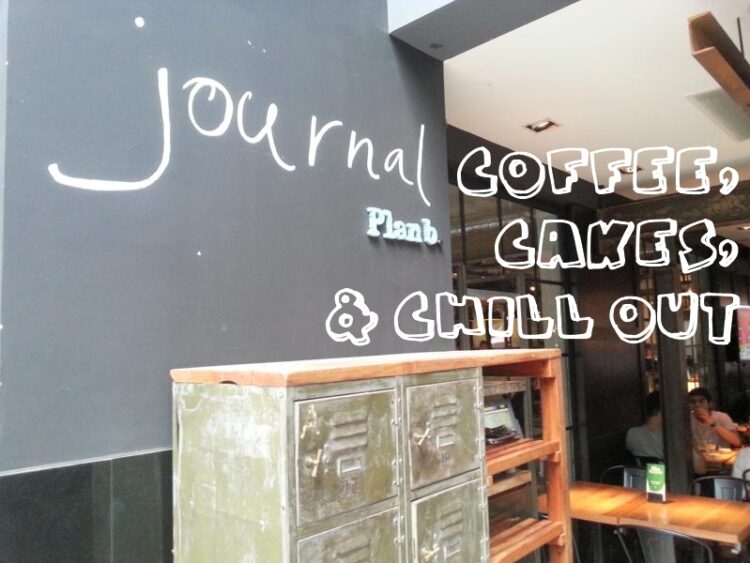 journal
Plan b
COFFEE,
CAKES,
& CHILL OUT